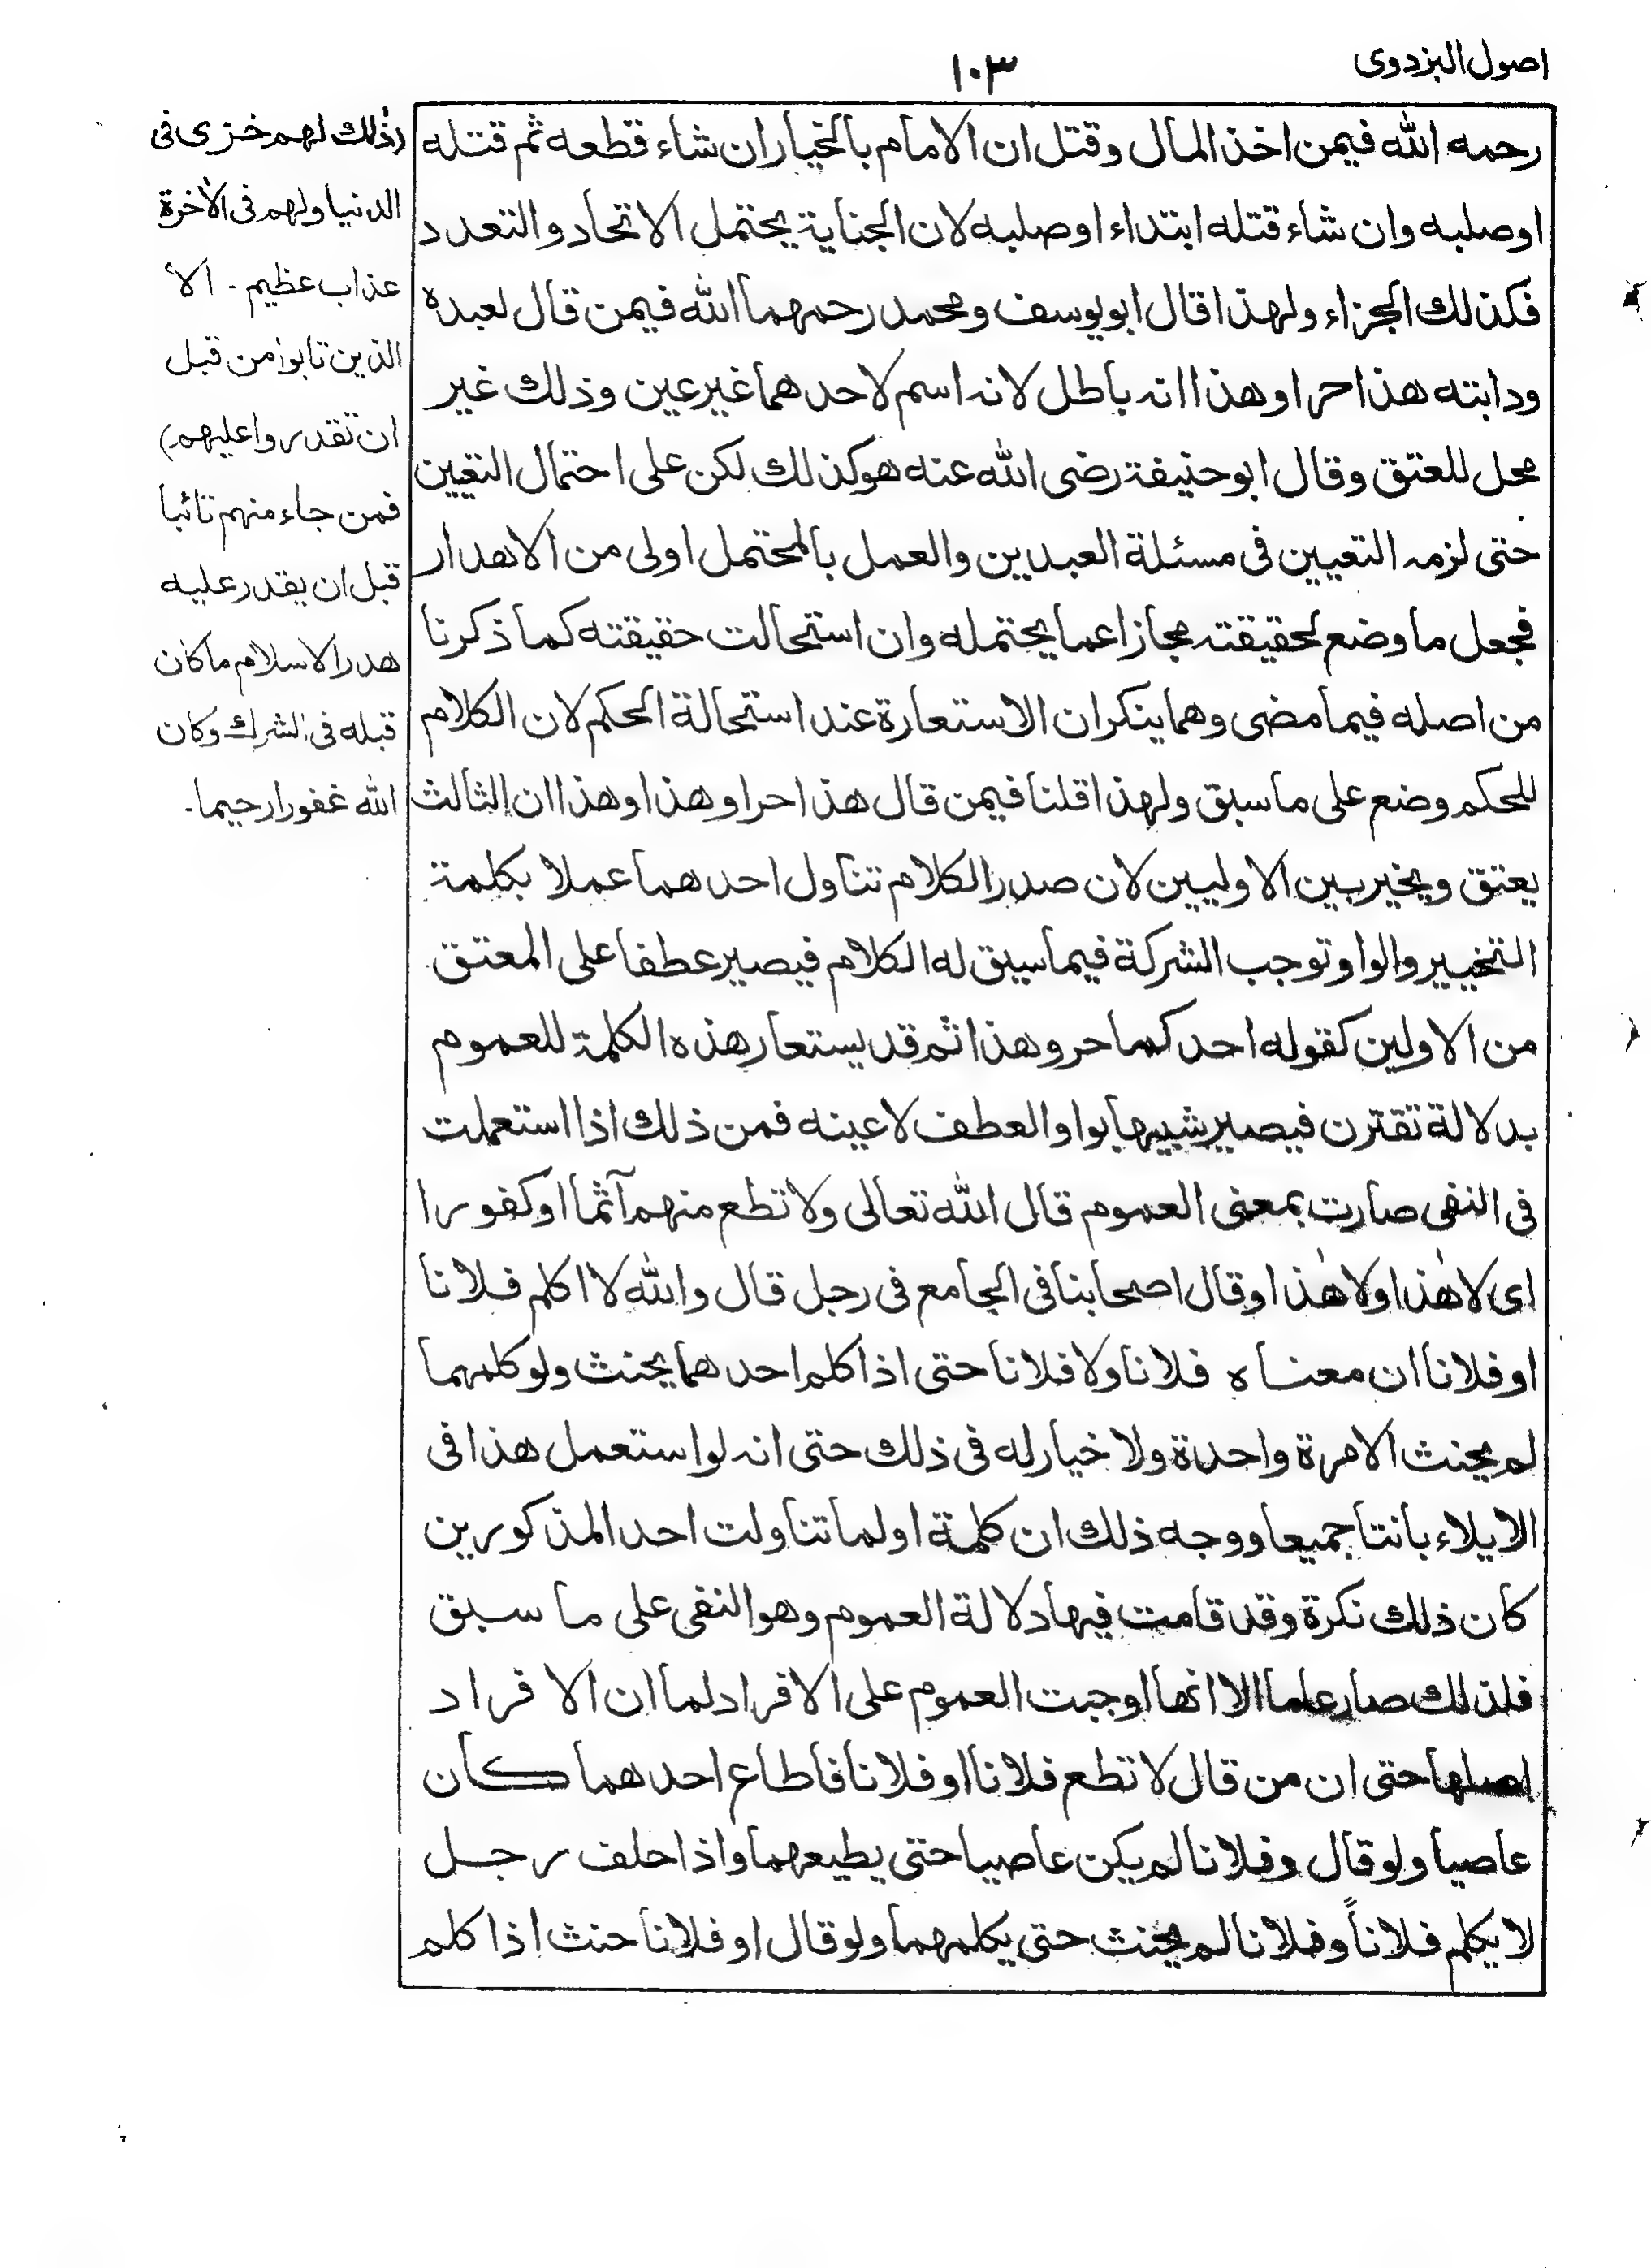 اصول البزدوى
١٠٣
رحمه الله فيمن اخذ المال وقتل ان الامام بالخيار ان شاء قطعه ثم قتله
او صلبه وان شاء قتله ابتداء او صلبه لان الجناية يحتمل الاتحاد والتعدد
فكذلك الجزاء ولهذا قال ابو يوسف ومحمد رحمهما الله فيمن قال لعبده
ودابته هذا حر او هذا انه باطل لانه اسم لاحدهما غير عين وذلك غير
محل للعتق وقال ابو حنيفة رضى الله عنه هو كذلك لكن على احتمال التعيين
حتى لزمه التعيين فى مسئلة العبدين والعمل بالمحتمل اولى من الاهدار
فجعل ما وضع لحقيقته مجازا عما يحتمله وان استحالت حقيقته كما ذكرنا
من اصله فيما مضى وهما ينكران الاستعارة عند استحالة الحكم لان الكلام
للحكم وضع على ما سبق ولهذا قلنا فيمن قال هذا حر او هذا وهذا ان الثالث
يعتق ويخير بين الاوليين لان صدر الكلام تناول احدهما عملا بكلمة
التخيير والواو توجب الشركة فيما سيق له الكلام فيصير عطفا على المعتق
من الاولين كقوله احدكما حر وهذا ثم قد يستعار هذه الكلمة للعموم
بدلالة تقترن فيصير شبيها بواو العطف لا عينه فمن ذلك اذا استعملت
فى النفى صارت بمعنى العموم قال الله تعالى ولا تطع منهم آثما او كفورا
اى لا هٰذا ولا هٰذا وقال اصحابنا فى الجامع فى رجل قال والله لا اكلم فلانا
او فلانا ان معناه فلانا ولا فلانا حتى اذا كلم احدهما يحنث ولو كلمهما
لم يحنث الا مرة واحدة ولا خيار له فى ذلك حتى انه لو استعمل هذا فى
الايلاء بانتا جميعا ووجه ذلك ان كلمة او لما تناولت احد المذكورين
كان ذلك نكرة وقد قامت فيها دلالة العموم وهو النفى على ما سبق
فلذلك صار عاما الا انها اوجبت العموم على الافراد لما ان الافراد
اصلها حتى ان من قال لا تطع فلانا او فلانا فاطاع احدهما كان
عاصيا ولو قال وفلانا لم يكن عاصيا حتى يطيعهما واذا حلف رجل
لا يكلم فلاناً وفلانا لم يحنث حتى يكلمهما ولو قال او فلانا حنث اذا كلم
(ذلك لهم خزى فى
الدنيا ولهم فى الأخرة
عذاب عظيم - الا
الذين تابوا من قبل
ان تقدروا عليهم)
فمن جاء منهم تائبا
قبل ان يقدر عليه
هدر الاسلام ما كان
قبله فى الشرك وكان
الله غفورا رحيما -